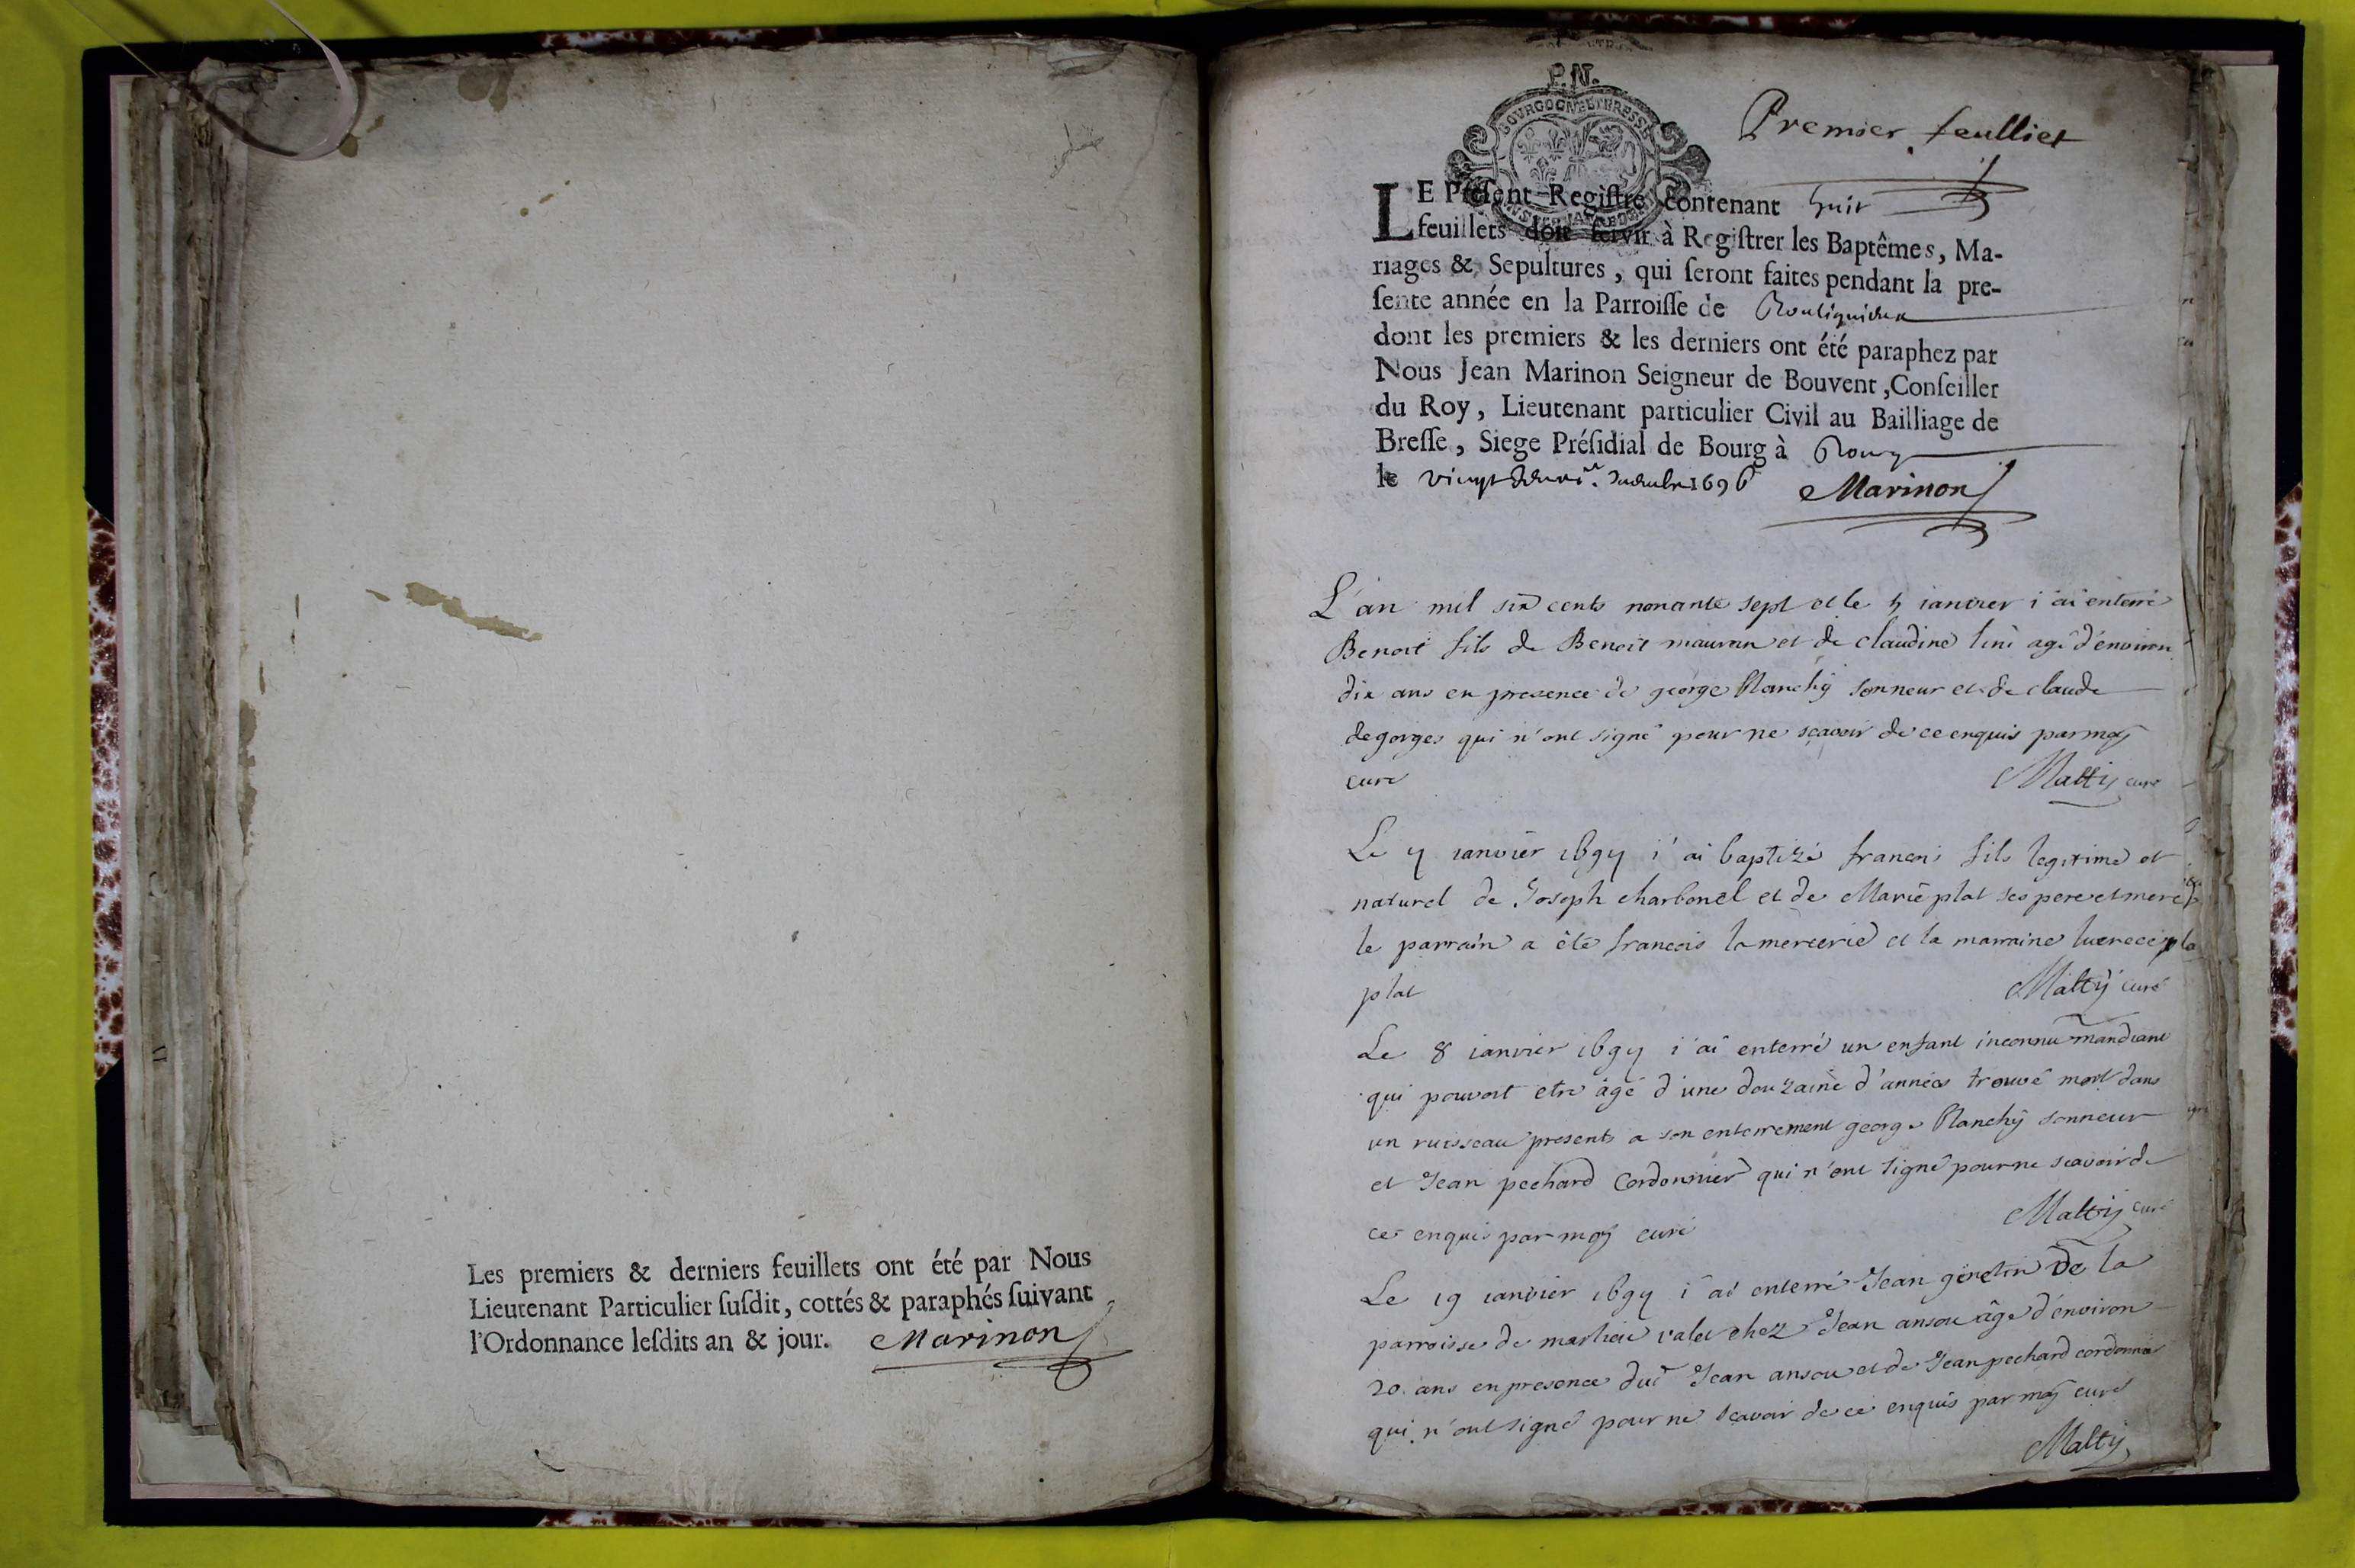 Les premiers & derniers feuillets ont été par Nous
Lieutenant Particulier ſuſdit, cottés & paraphés ſuivant
l'Ordonnance leſdits an & jour. Marinon
P.N.
BOURGOGNE ET BRESSE
Premier feulliet
LE Preſent Regiſtre contenant huit
feuillets doit ſervir à Regiſtrer les Baptêmes, Ma-
riages & Sepultures, qui ſeront faites pendant la pre-
ſente année en la Parroiſſe de Bouligneux
dont les premiers & les derniers ont été paraphez par
Nous Jean Marinon Seigneur de Bouvent, Conſeiller
du Roy, Lieutenant particulier Civil au Bailliage de
Breſſe, Siege Préſidial de Bourg à Bourg
le vingt 1696 Marinon
L'an mil six cents nonante sept et le 5 ianvier i'ai enterré
Benoit fils de Benoit mauvan et de claudine age d'environ
dix ans en presence de george Planchy sonneur et de claude
degorges qui n'ont signé pour ne sçavoir de ce enquis par moy
curé Malty curé
Le 7 ianvier 1697 i'ai baptizé francois fils legitime et
naturel de Joseph charbonel et de Marie plat ses pere et mere
le parrain a été francois lamercerie et la marraine lucrece
plat Malty curé
Le 8 ianvier 1697 i'ai enterré un enfant inconnu mandiant
qui pouvoit etre âgé d'une douzaine d'années trouvé mort dans
un ruisseau presents a son enterrement george Planchy sonneur
et Jean pechard Cordonnier qui n'ont signé pour ne scavoir de
ce enquis par moy curé Malty curé
Le 19 ianvier 1697 i'ai enterré Jean genetin de la
parroisse de marlieu valet chez Jean ansou âge d'environ
20 ans en presence dud Jean ansou et de Jean pechard cordonnier
qui n'ont signé pour ne scavoir de ce enquis par moy curé
Malty